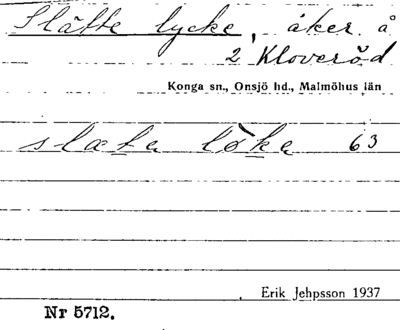 Slätte lycke, åker å
2 Kloveröd
Konga sn., Onsjö hd., Malmöhus län
slæta lökə 63
Erik Jehpsson 1937
Nr 5712.